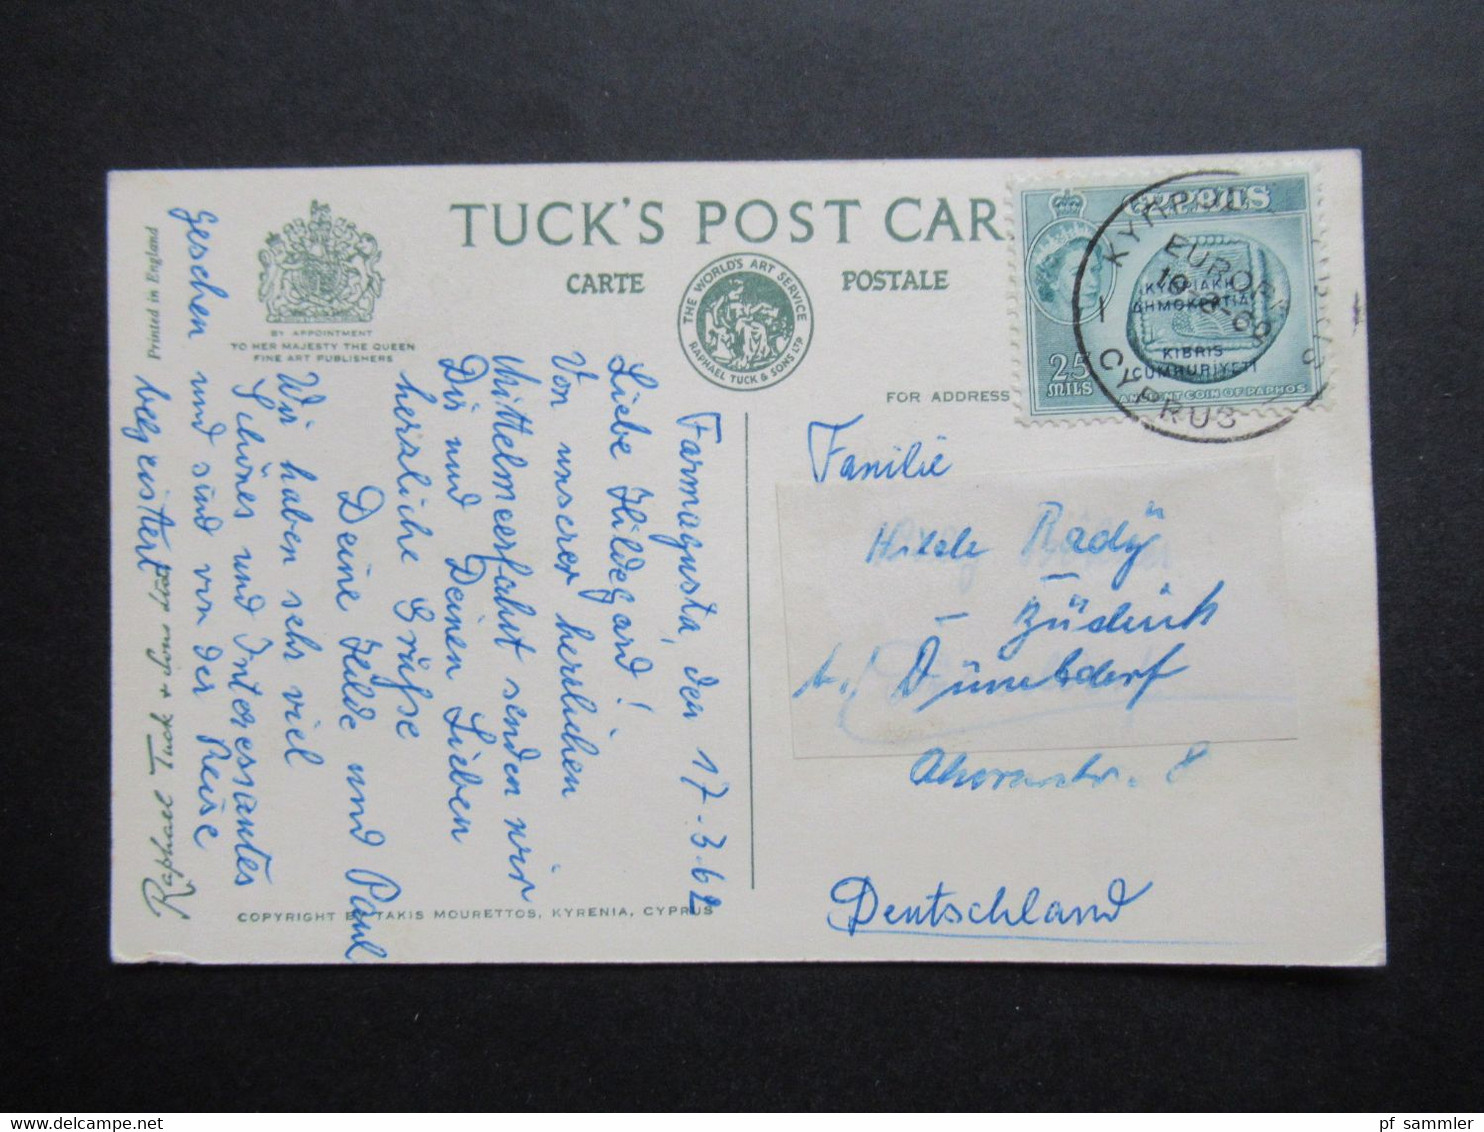 TUCK'S POST CAR
CARTE POSTALE
THE WORLD'S ART SERVICE
RAPHAEL TUCK & SONS LTD
BY APPOINTMENT
TO HER MAJESTY THE QUEEN
FINE ART PUBLISHERS
Printed in England
Raphael Tuck & Sons Ltd
COPYRIGHT BY TAKIS MOURETTOS, KYRENIA, CYPRUS
FOR ADDRESS
Farmagusta, den 17.3.62
Liebe Hildegard!
Von unserer herrlichen
Mittelmeerfahrt senden wir
Dir und Deinen Lieben
herzliche Grüsse
Deine Hilde und Paul
Wir haben sehr viel
Schönes und Interessantes
gesehen und sind von der Reise
begeistert
CYPRUS
25
MILS
ΚΥΠΡΙΑΚΗ
ΔΗΜΟΚΡΑΤΙΑ
KIBRIS
CUMHURİYETİ
ANCIENT COIN OF PAPHOS
EUROPA
CYPRUS
Familie
Deutschland
pf sammler